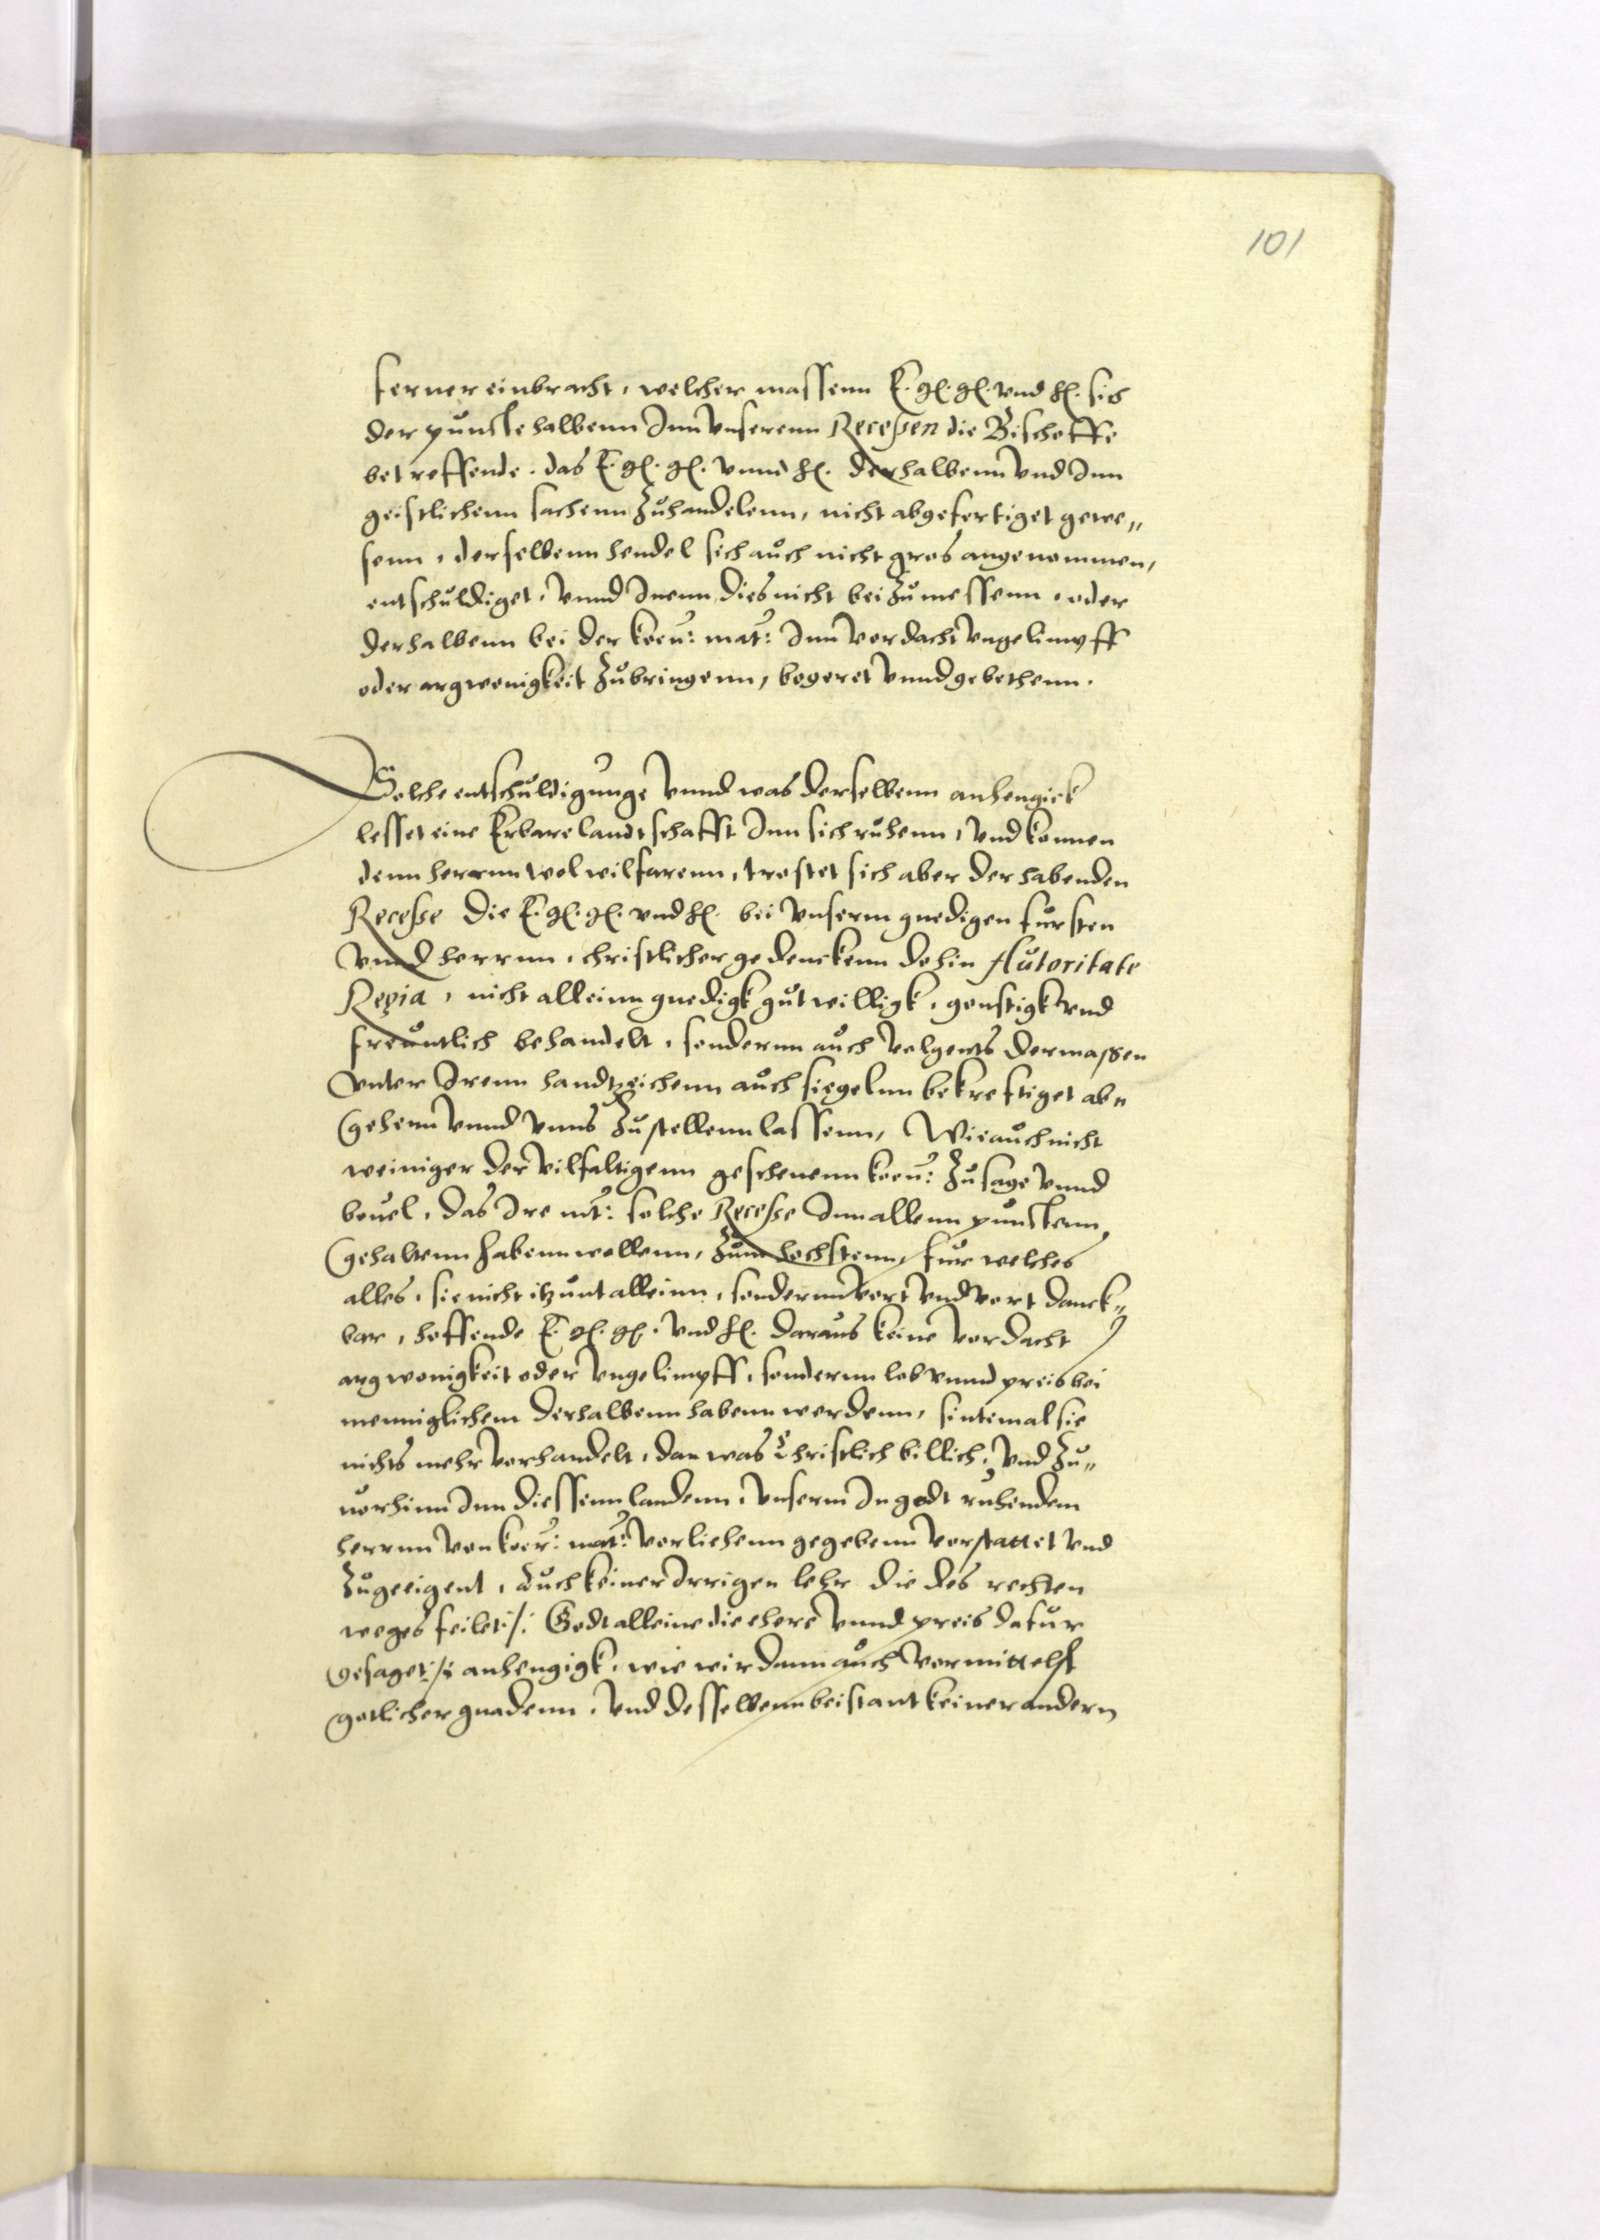 101
ferner einbracht, welcher massenn E. gl. gl. vnd hl. sich
der puncte halbenn Inn vnserenn Recessen die Bischoffe
betreffende. das E. gl. gl. vnnd hl. derhalbenn vnd Inn
geistlichenn sachenn Zuhandelenn, nicht abgefertiget gewe„
senn, derselbenn hendel sich auch nicht gros angenommen,
entschuldiget, vnnd Inenn dies nicht bei Zumessenn, oder
derhalbenn bei der koen: mat: Inn vordacht vngelimpff
oder argwenigkeit Zubringenn, begeret vnnd gebethenn.
Solche entschuldigunge vnnd was derselbenn anhengick
lesset eine Erbare landtschafft Inn sich ruhenn, vnd konnen
denn herrnn wol wilfarenn, trostet sich aber der habenden
Recesse die E. gl. gl. vnd hl. bei vnserm gnedigen fursten
vnnd herrnn, christlicher gedenckenn dohin Autoritate
Regia, nicht alleinn gnedigk gutwilligk, gonstigk vnd
freuntlich behandelt, sondernn auch volgents dermassen
vnter Irenn handtzeichenn auch siegelnn bekreftiget ab„
gehenn vnnd vnns Zustellenn lassenn, Wie auch nicht
weiniger der vilfaltigenn geschenenn koen: Zusage vnnd
beuel, das Ire mt: solche Recesse Inn allenn punctenn
gehaltenn habenn wollenn, Zum hochstenn, fur welches
alles, sie nicht itzunt alleinn, sondernn vort vnd vort danck„
bar, hoffende E. gl. gl. vnd hl. daraus keine vordacht
argwonigkeit oder vngelimpff, sondernn lob vnnd preis bei
menniglichem derhalbenn habenn werdenn, sintemal sie
nichts mehr vorhandelt, dan was Christlich billich, vnd Zu„
uorhinn Inn diessenn landenn, vnserm In godt ruhendem
herrnn von koer: mat: vorliehenn gegebenn vorstattet vnd
Zugeeigent, Auch keiner Irrigen lehr die des rechten
weges feilet :/: Godt alleine die ehere vnnd preis dafur
gesaget :/: anhengigk, wie wir dann auch vormittelst
gotlicher gnadenn, vnd desselbenn beistant keiner andern